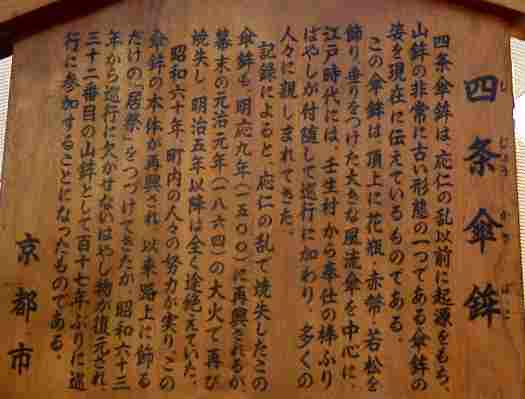 四条傘鉾
し じょう かさ ほこ
四条傘鉾は、応仁の乱以前に起源をもち、
山鉾の非常に古い形態の一つである傘鉾の
姿を現在に伝えているものである。
この傘鉾は、頂上に花瓶、赤幣、若松を
飾り垂りをつけた大きな風流傘を中心に、
江戸時代には、壬生村から奉仕の棒ふり
はやしが付随して巡行に加わり、多くの
人々に親しまれてきた。
記録によると、応仁の乱で焼失したこの
傘鉾も、明応九年(一五〇〇)に再興されるが、
幕末の元治元年(一八六四)の大火で再び
焼失し、明治五年以降は全く途絶えていた。
昭和六十年、町内の人々の努力が実り、この
傘鉾の本体が再興され、以来路上に飾る
だけの「居祭」をつづけてきたが、昭和六十三
年から巡行に欠かせないはやし物が復元され、
三十二番目の山鉾として百十七年ぶりに巡
行に参加することになったものである。
京都市